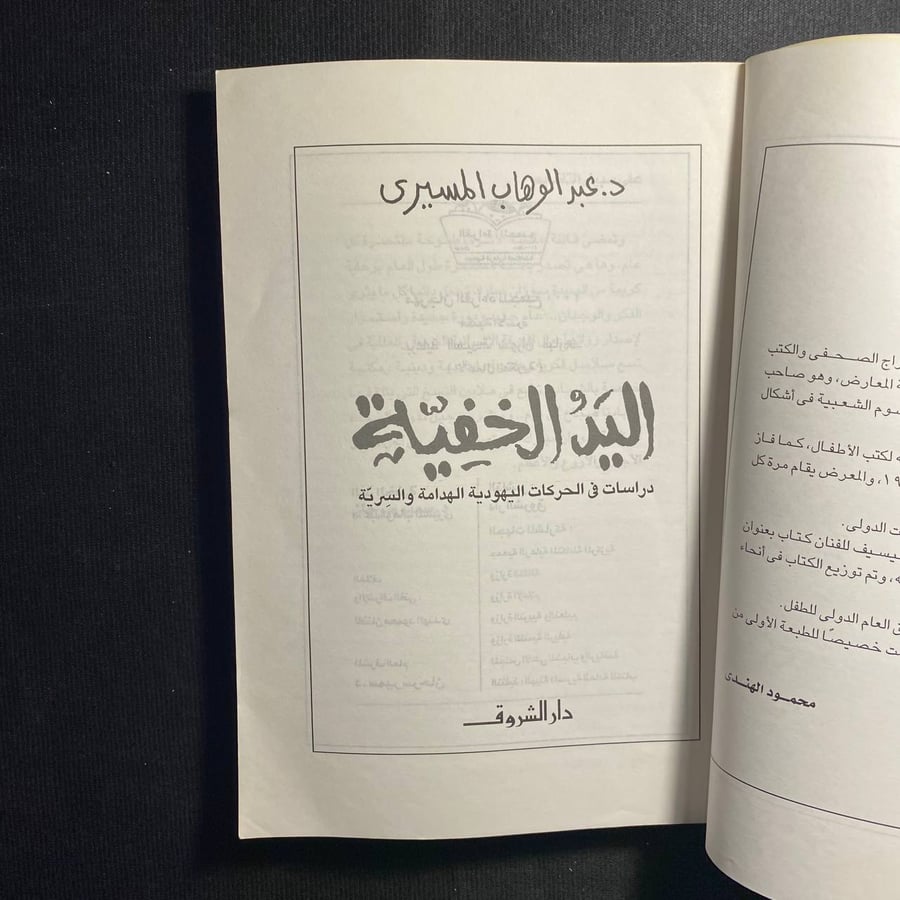 د. عبد الوهاب المسيرى
اليَدُ الخَفِيَّة
دراسات فى الحركات اليهودية الهدامة والسِريّة
دار الشروق
راج الصحفى والكتب
ة المعارض، وهو صاحب
سوم الشعبية فى أشكال
ه لكتب الأطفال، كما فاز
١٩، والمعرض يقام مرة كل
ت الدولى.
يسيف للفنان كتاب بعنوان
ه، وتم توزيع الكتاب فى أنحاء
ق العام الدولى للطفل.
ت خصيصًا للطبعة الأولى من
محمود الهندى